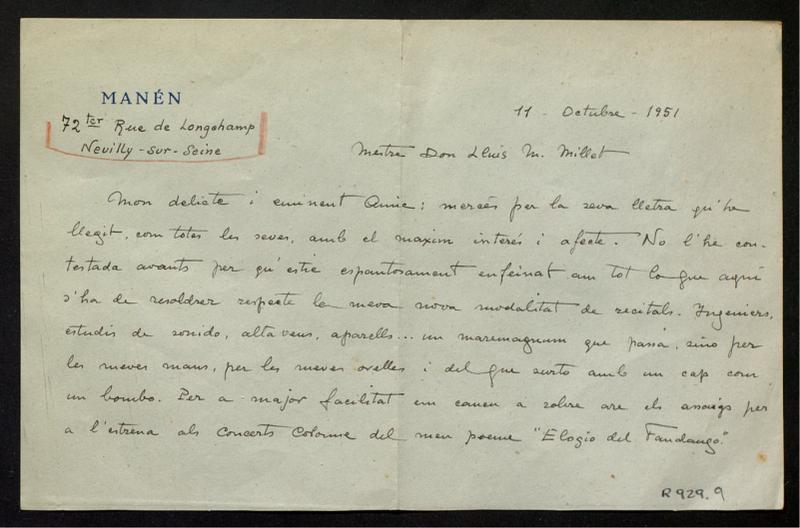 MANÉN
72 ter Rue de Longchamp
Neuilly-sur-Seine
11 Octubre - 1951
Mestre Don Lluís M. Millet
Mon delicte i eminent Amic: mercès per la seva lletra qu'he
llegit, com totes les seves, amb el maxim interés i afecte. No l'he con-
testada avants per qu'estic espantosament enfeinat am tot lo que aquí
s'ha de resoldrer respecte la meva nova modalitat de recitals. Ingeniers,
estudis de sonido, altaveus, aparells... un maremagnum que passa, sino per
les meves mans, per les meves orelles i del que surto amb un cap com
un bombo. Per a major facilitat em cauen a sobre are els assaigs per
a l'estrena als Concerts Colonne del meu poeme "Elogio del Fandango".
R 929.9